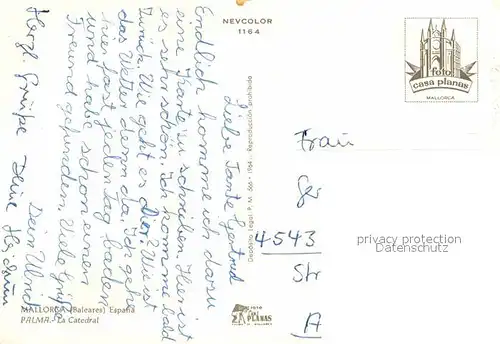 NEVCOLOR
1164
foto
casa planas
MALLORCA
Liebe Tante Gertrud
Endlich komme ich dazu
eine Karte zu schreiben. Hier ist
es sehr schön. Ich komme bald
zurück. Wie geht es Dir? Wie ist
das Wetter denn da. Ich gehe
hier fast jeden Tag baden
und habe schon einen
Freund gefunden. Viele Grüße
Dein Ulrich
Herzl. Grüße Deine
Depósito Legal P. M. 566 - 1964 - Reproducción prohibida
Frau
4543
Str
A
privacy protection
Datenschutz
MALLORCA (Baleares) España
PALMA.- La Catedral
FOTO
CASA
PLANAS